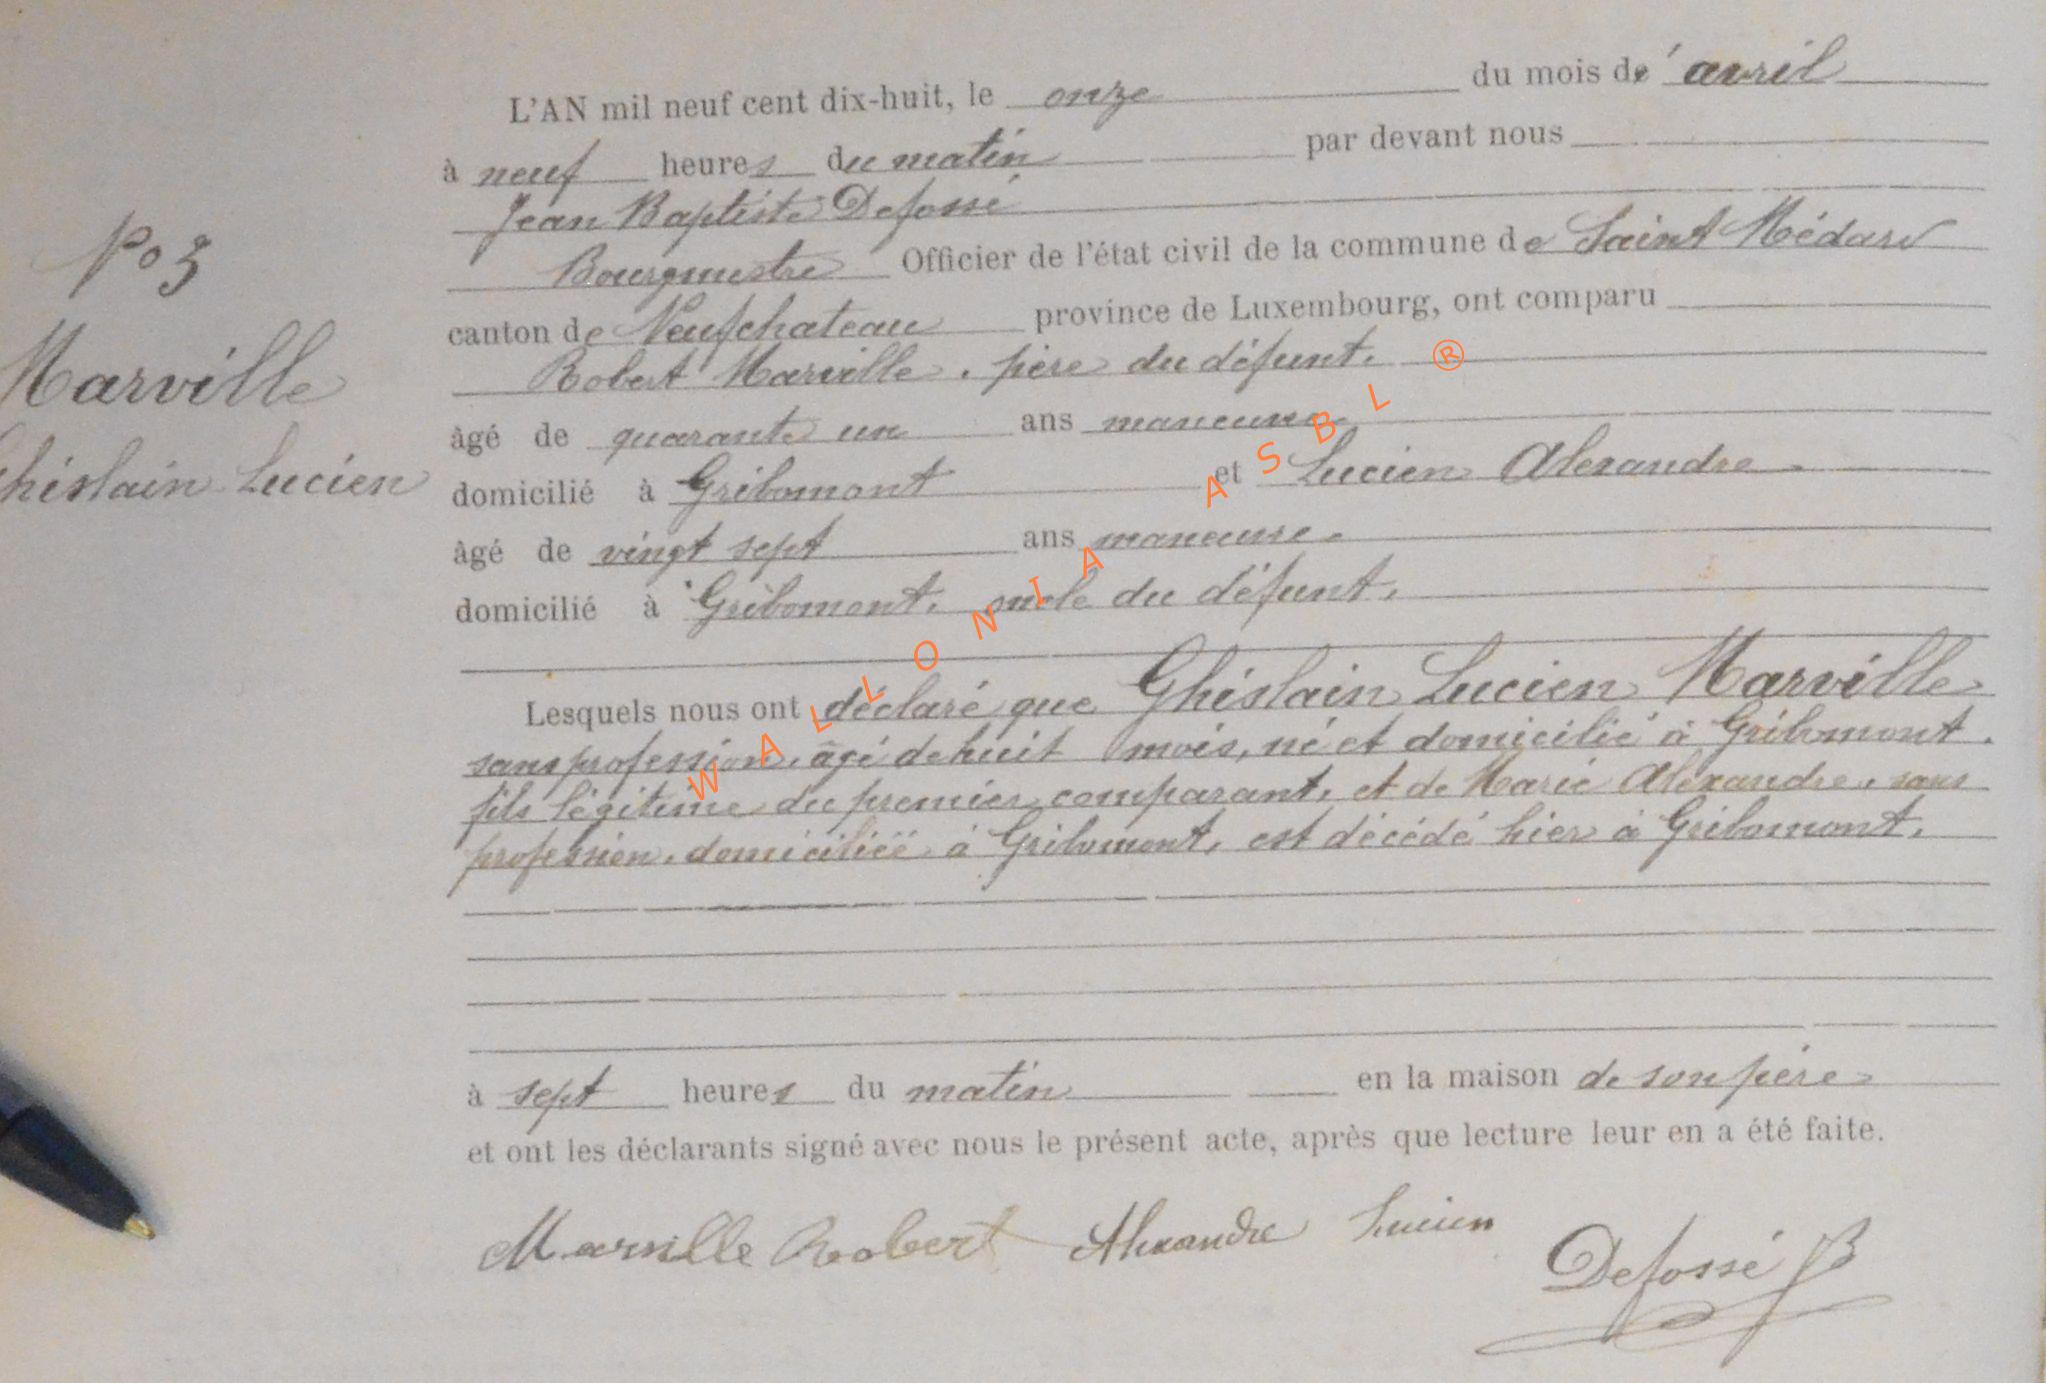 L'AN mil neuf cent dix-huit, le onze du mois d'avril
à neuf heures du matin par devant nous
Jean Baptiste Defossé
Bourgmestre Officier de l'état civil de la commune de Saint Médard
canton de Neufchateau province de Luxembourg, ont comparu
Robert Marville, père du défunt,
âgé de quarante un ans manœuvre
domicilié à Gribomont et Lucien Alexandre
âgé de vingt sept ans manœuvre
domicilié à Gribomont, oncle du défunt,
Lesquels nous ont déclaré que Ghislain Lucien Marville
sans profession, âgé de huit mois, né et domicilié à Gribomont.
fils légitime du premier comparant, et de Marie Alexandre, sans
profession, domiciliée à Gribomont, est décédé hier à Gribomont,
à sept heures du matin en la maison de son père
et ont les déclarants signé avec nous le présent acte, après que lecture leur en a été faite.
Marville Robert Alexandre Lucien
Defossé JB
No 3
Marville
Ghislain Lucien
WALLONIA ASBL ®